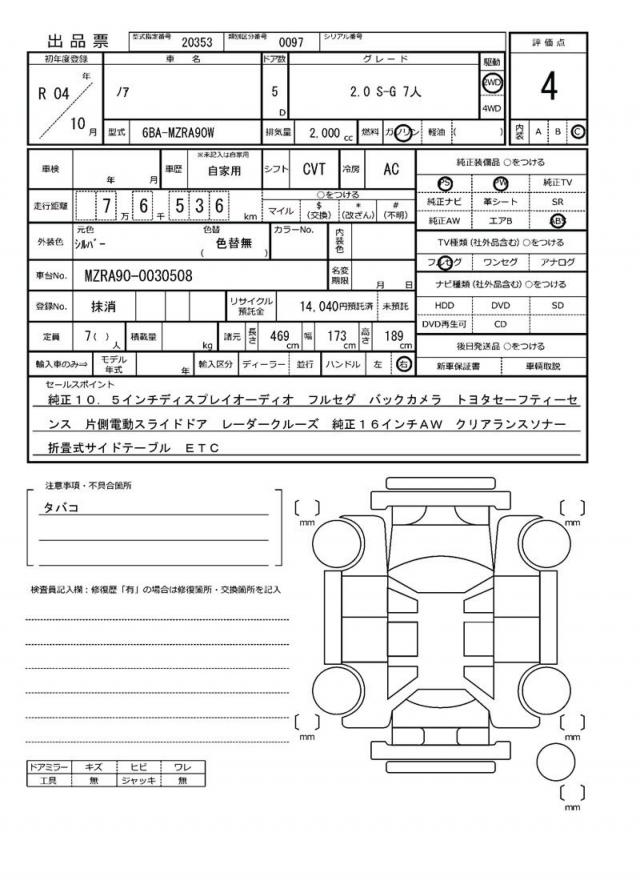 出品票 型式指定番号 20353 類別区分番号 0097 シリアル番号
評価点
初年度登録 車名 ドア数 グレード 駆動
R 04 年 ノア 5 D 2.0 S-G 7人 2WD 4WD
4
10 月 型式 6BA-MZRA90W 排気量 2,000 cc 燃料 ガソリン 軽油 ( )
内装 A B C
車検 年 月 車歴 ※未記入は自家用 自家用 シフト CVT 冷房 AC
純正装備品 ○をつける
PS PW 純正TV
走行距離 7 万 6 千 5 3 6 km ○をつける
マイル $(交換) *(改ざん) #(不明)
純正ナビ 革シート SR
純正AW エアB ABS
外装色 元色 シルバー 色替 ( 色替無 ) カラーNo. 内装色
TV種類(社外品含む)○をつける
フルセグ ワンセグ アナログ
車台No. MZRA90-0030508 名変期限 月 日
ナビ種類(社外品含む)○をつける
登録No. 抹消 リサイクル預託金 14,040円預託済 未預託
HDD DVD SD
DVD再生可 CD
定員 7( )人 積載量 kg 諸元 長さ 469 cm 幅 173 cm 高さ 189 cm
後日発送品 ○をつける
輸入車のみ⇒ モデル年式 年 輸入区分 ディーラー 並行 ハンドル 左 右
新車保証書 車輌取説
セールスポイント
純正10．5インチディスプレイオーディオ フルセグ バックカメラ トヨタセーフティーセ
ンス 片側電動スライドドア レーダークルーズ 純正16インチAW クリアランスソナー
折畳式サイドテーブル ETC
注意事項・不具合箇所
タバコ
検査員記入欄：修復歴「有」の場合は修復箇所・交換箇所を記入
mm
mm
mm
mm
mm
ドアミラー キズ ヒビ ワレ
工具 無 ジャッキ 無